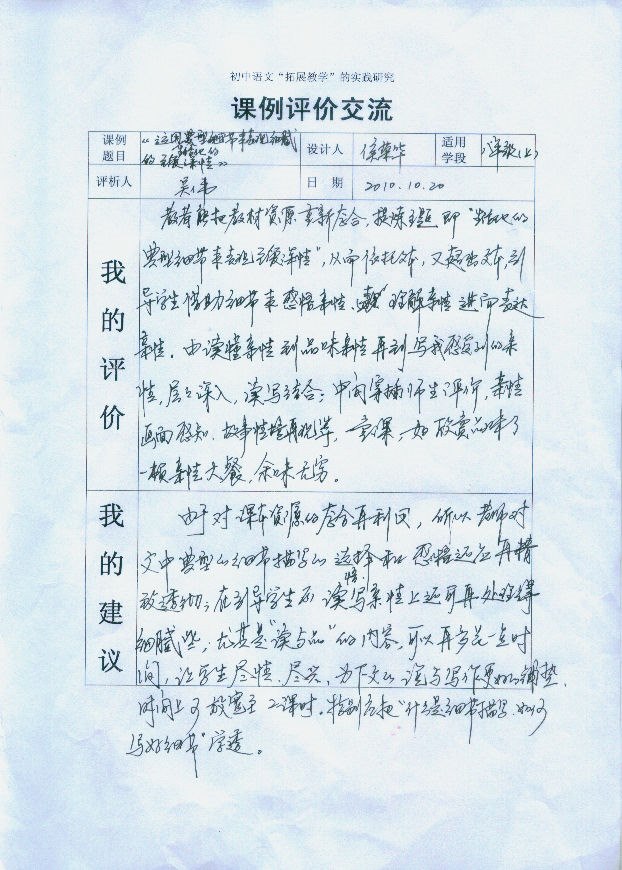 初中语文“拓展教学”的实践研究
课例评价交流
课例题目 《运用典型细节来表现细腻的
的至爱亲情》
设计人 侯荣华 适用学段 八年级(上)
评析人 吴伟 日期 2010.10.20
我的评价
教者能把教材资源重新整合,提炼主题即“
典型细节来表现至爱亲情”,从而依托文本,又超出文本,引
导学生借助细节来感悟亲情、理解亲情进而表达
亲情。由读懂亲情到品味亲情再到写我感受到的亲
情,层层深入,读写结合;中间穿插师生评价,亲情
画面感知、故事情境再现等,一堂课,如欣赏品味了
一顿亲情大餐,余味无穷。
我的建议
由于对课本资源的整合再利用,所以老师对
文中典型的细节描写的选择和感悟还应再精
致透彻;在引导学生的读悟写亲情上还可再处理得
细腻些,尤其是“读与品”的内容,可以再多花一点时
间,让学生尽情、尽兴,为下文的说与写作更好的铺垫.
时间上可放宽至二课时.特别应把“什么是细节描写.如何
写好细节”学透。